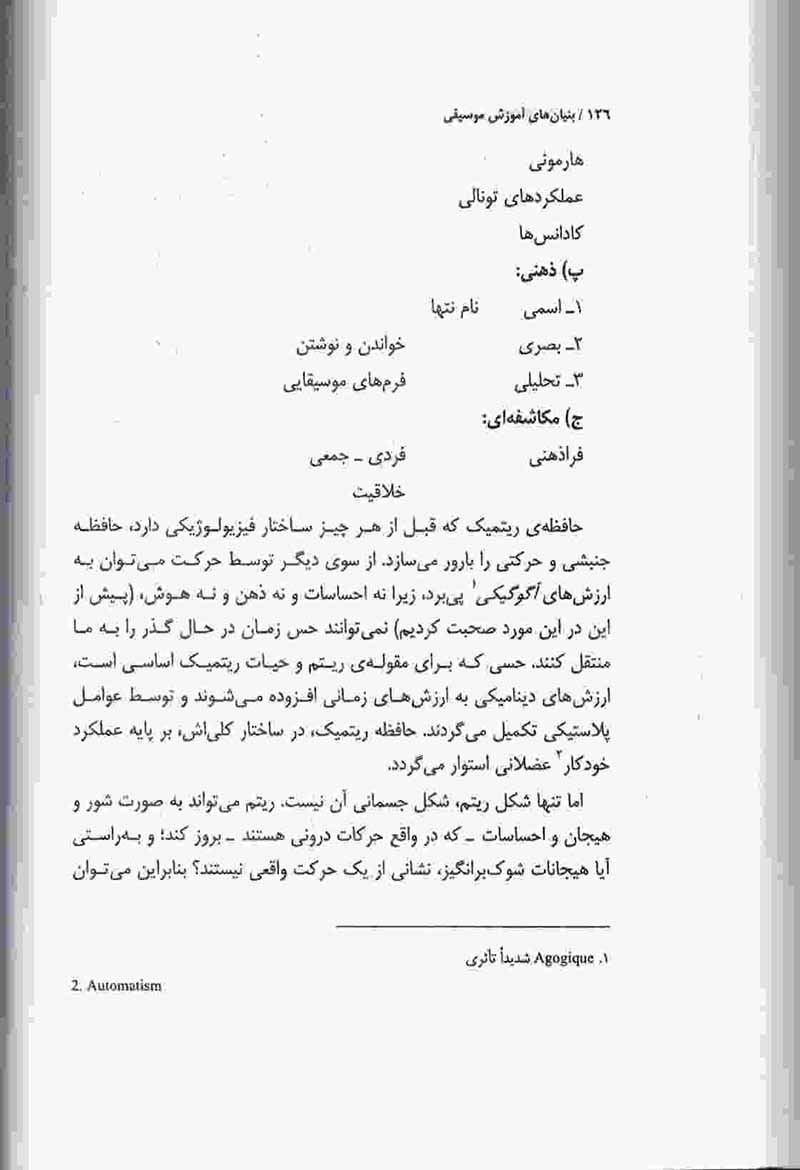 ۱۲۶ / بنیان‌های آموزش موسیقی
هارمونی
عملکردهای تونالی
کادانس‌ها
پ) ذهنی:
۱ـ اسمی نام نتها
۲ـ بصری خواندن و نوشتن
۳ـ تحلیلی فرم‌های موسیقایی
ج) مکاشفه‌ای:
فراذهنی فردی ـ جمعی
خلاقیت
حافظه‌ی ریتمیک که قبل از هر چیز ساختار فیزیولوژیکی دارد، حافظه
جنبشی و حرکتی را بارور می‌سازد. از سوی دیگر توسط حرکت می‌توان به
ارزش‌های آگوگیکی۱ پی‌برد، زیرا نه احساسات و نه ذهن و نه هوش، (پیش از
این در این مورد صحبت کردیم) نمی‌توانند حس زمان در حال گذر را به ما
منتقل کنند. حسی که برای مقوله‌ی ریتم و حیات ریتمیک اساسی است،
ارزش‌های دینامیکی به ارزش‌های زمانی افزوده می‌شوند و توسط عوامل
پلاستیکی تکمیل می‌گردند. حافظه ریتمیک، در ساختار کلی‌اش، بر پایه عملکرد
خودکار۲ عضلانی استوار می‌گردد.
اما تنها شکل ریتم، شکل جسمانی آن نیست. ریتم می‌تواند به صورت شور و
هیجان و احساسات ـ که در واقع حرکات درونی هستند ـ بروز کند؛ و به‌راستی
آیا هیجانات شوک‌برانگیز، نشانی از یک حرکت واقعی نیستند؟ بنابراین می‌توان
۱. Agogique شدیداً تاثری
2. Automatism